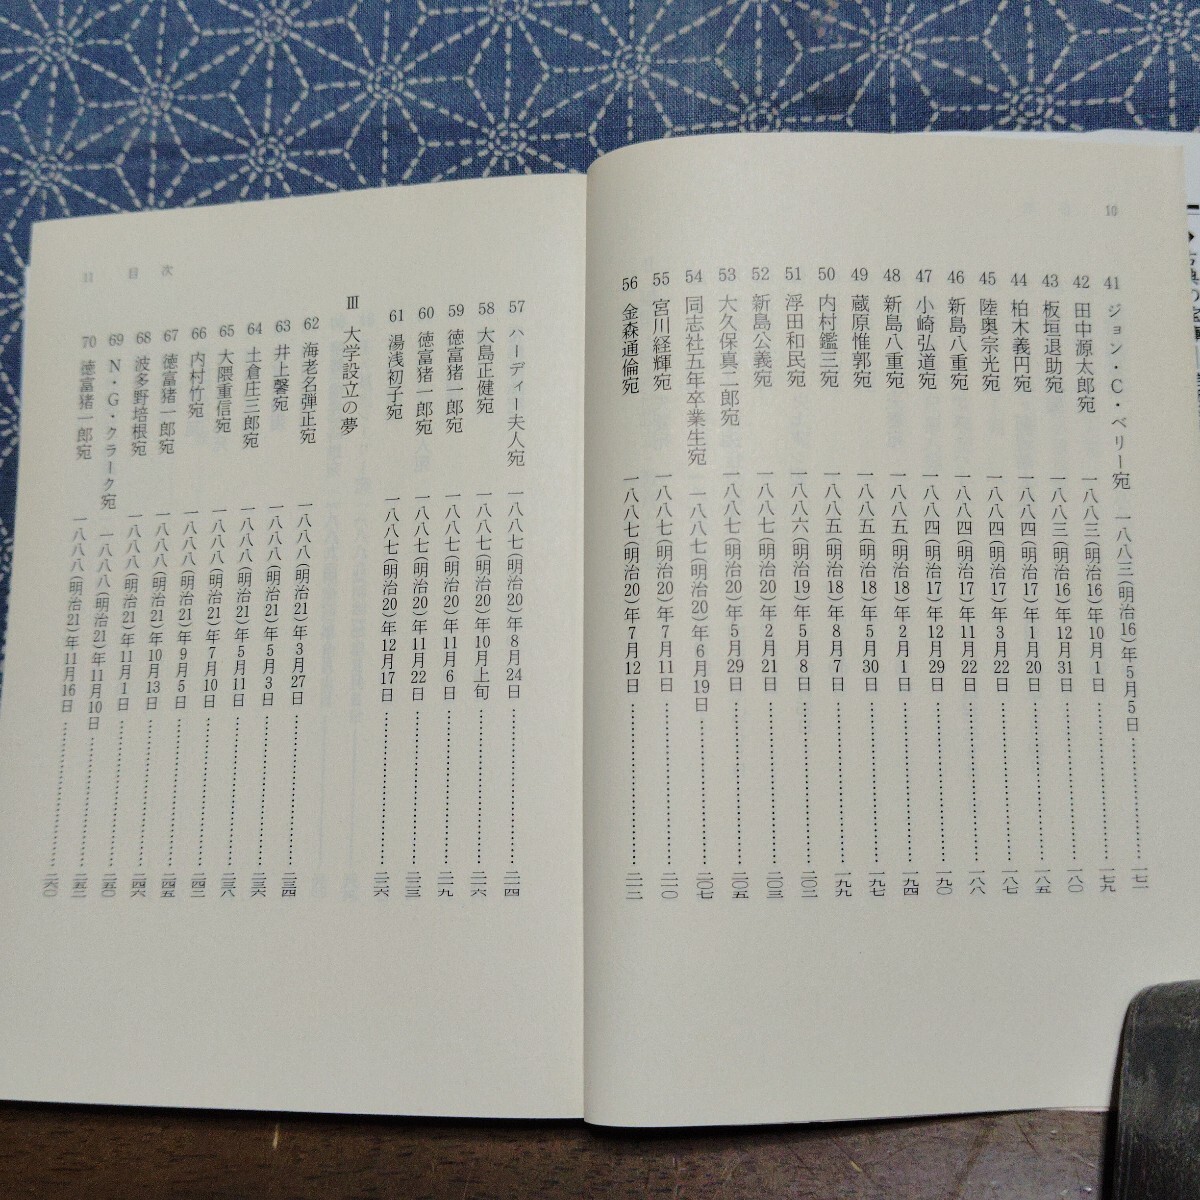 10
41 ジョン・C・ベリー宛 一八八三(明治16)年5月5日 一七一
42 田中源太郎宛 一八八三(明治16)年10月1日 一七九
43 板垣退助宛 一八八三(明治16)年12月31日 一八〇
44 柏木義円宛 一八八四(明治17)年1月20日 一八五
45 陸奥宗光宛 一八八四(明治17)年3月22日 一八七
46 新島八重宛 一八八四(明治17)年11月22日 一八八
47 小崎弘道宛 一八八四(明治17)年12月29日 一九〇
48 新島八重宛 一八八五(明治18)年2月1日 一九四
49 蔵原惟郭宛 一八八五(明治18)年5月30日 一九七
50 内村鑑三宛 一八八五(明治18)年8月7日 一九九
51 浮田和民宛 一八八六(明治19)年5月8日 二〇二
52 新島公義宛 一八八七(明治20)年2月21日 二〇三
53 大久保真二郎宛 一八八七(明治20)年5月29日 二〇五
54 同志社五年卒業生宛 一八八七(明治20)年6月19日 二〇七
55 宮川経輝宛 一八八七(明治20)年7月11日 二一〇
56 金森通倫宛 一八八七(明治20)年7月12日
11 目次
57 ハーディー夫人宛 一八八七(明治20)年8月24日 二一四
58 大島正健宛 一八八七(明治20)年10月上旬 二一六
59 徳富猪一郎宛 一八八七(明治20)年11月6日 二一九
60 徳富猪一郎宛 一八八七(明治20)年11月22日 二二三
61 湯浅初子宛 一八八七(明治20)年12月17日 二二六
III 大学設立の夢
62 海老名弾正宛 一八八八(明治21)年3月27日 二三四
63 井上馨宛 一八八八(明治21)年5月3日 二三六
64 土倉庄三郎宛 一八八八(明治21)年5月11日 二三八
65 大隈重信宛 一八八八(明治21)年7月10日
66 内村竹宛 一八八八(明治21)年9月5日
67 徳富猪一郎宛 一八八八(明治21)年10月13日 二四五
68 波多野培根宛 一八八八(明治21)年11月1日 二四六
69 N・G・クラーク宛 一八八八(明治21)年11月10日 二五〇
70 徳富猪一郎宛 一八八八(明治21)年11月16日 二六〇